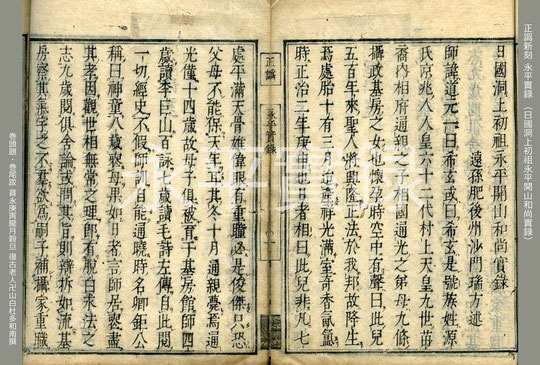 正譌新刻 永平實録 (日國洞上初祖永平開山和尚實録)
日國洞上初祖永平開山和尚實録
遠孫肥後州沙門瑞方述
師諱道元一曰希玄或曰希玄是號族姓源
氏京兆人人皇六十二代村上天皇九世苗
裔內相府通親之子相國通光之弟母九條
攝政基房之女也懷孕時空中有聲曰此兒
五百年來聖人將興隆正法於我邦故降生
焉處胎十有三月迨誕祥光滿室奇香氤氳
時正治二年庚申也言者相曰此兒非凡七
正譌
永平實録
處平滿天骨雄偉眼有重瞳必是俊傑只恐
父母不能保天年其冬十月通親薨焉通
光僅十四歲故母子俱被育于基房館師四
歲讀李巨山百詠七歲讀毛詩左傳自此閱
一切經史不假師訓自能通曉時名卿鉅公
稱曰神童八歲喪母飛如耆言師居喪盡
其孝因觀世相無常之理即有脫白求法之
志九歲閱俱舍論或問其旨則辯拆如流基
房察其無子之不羣欲爲嗣子補攝家重職
永平實録
卷頭題・卷尾跋 寶永庚寅臘月穀旦 復古老人卍山白杜多和南撰